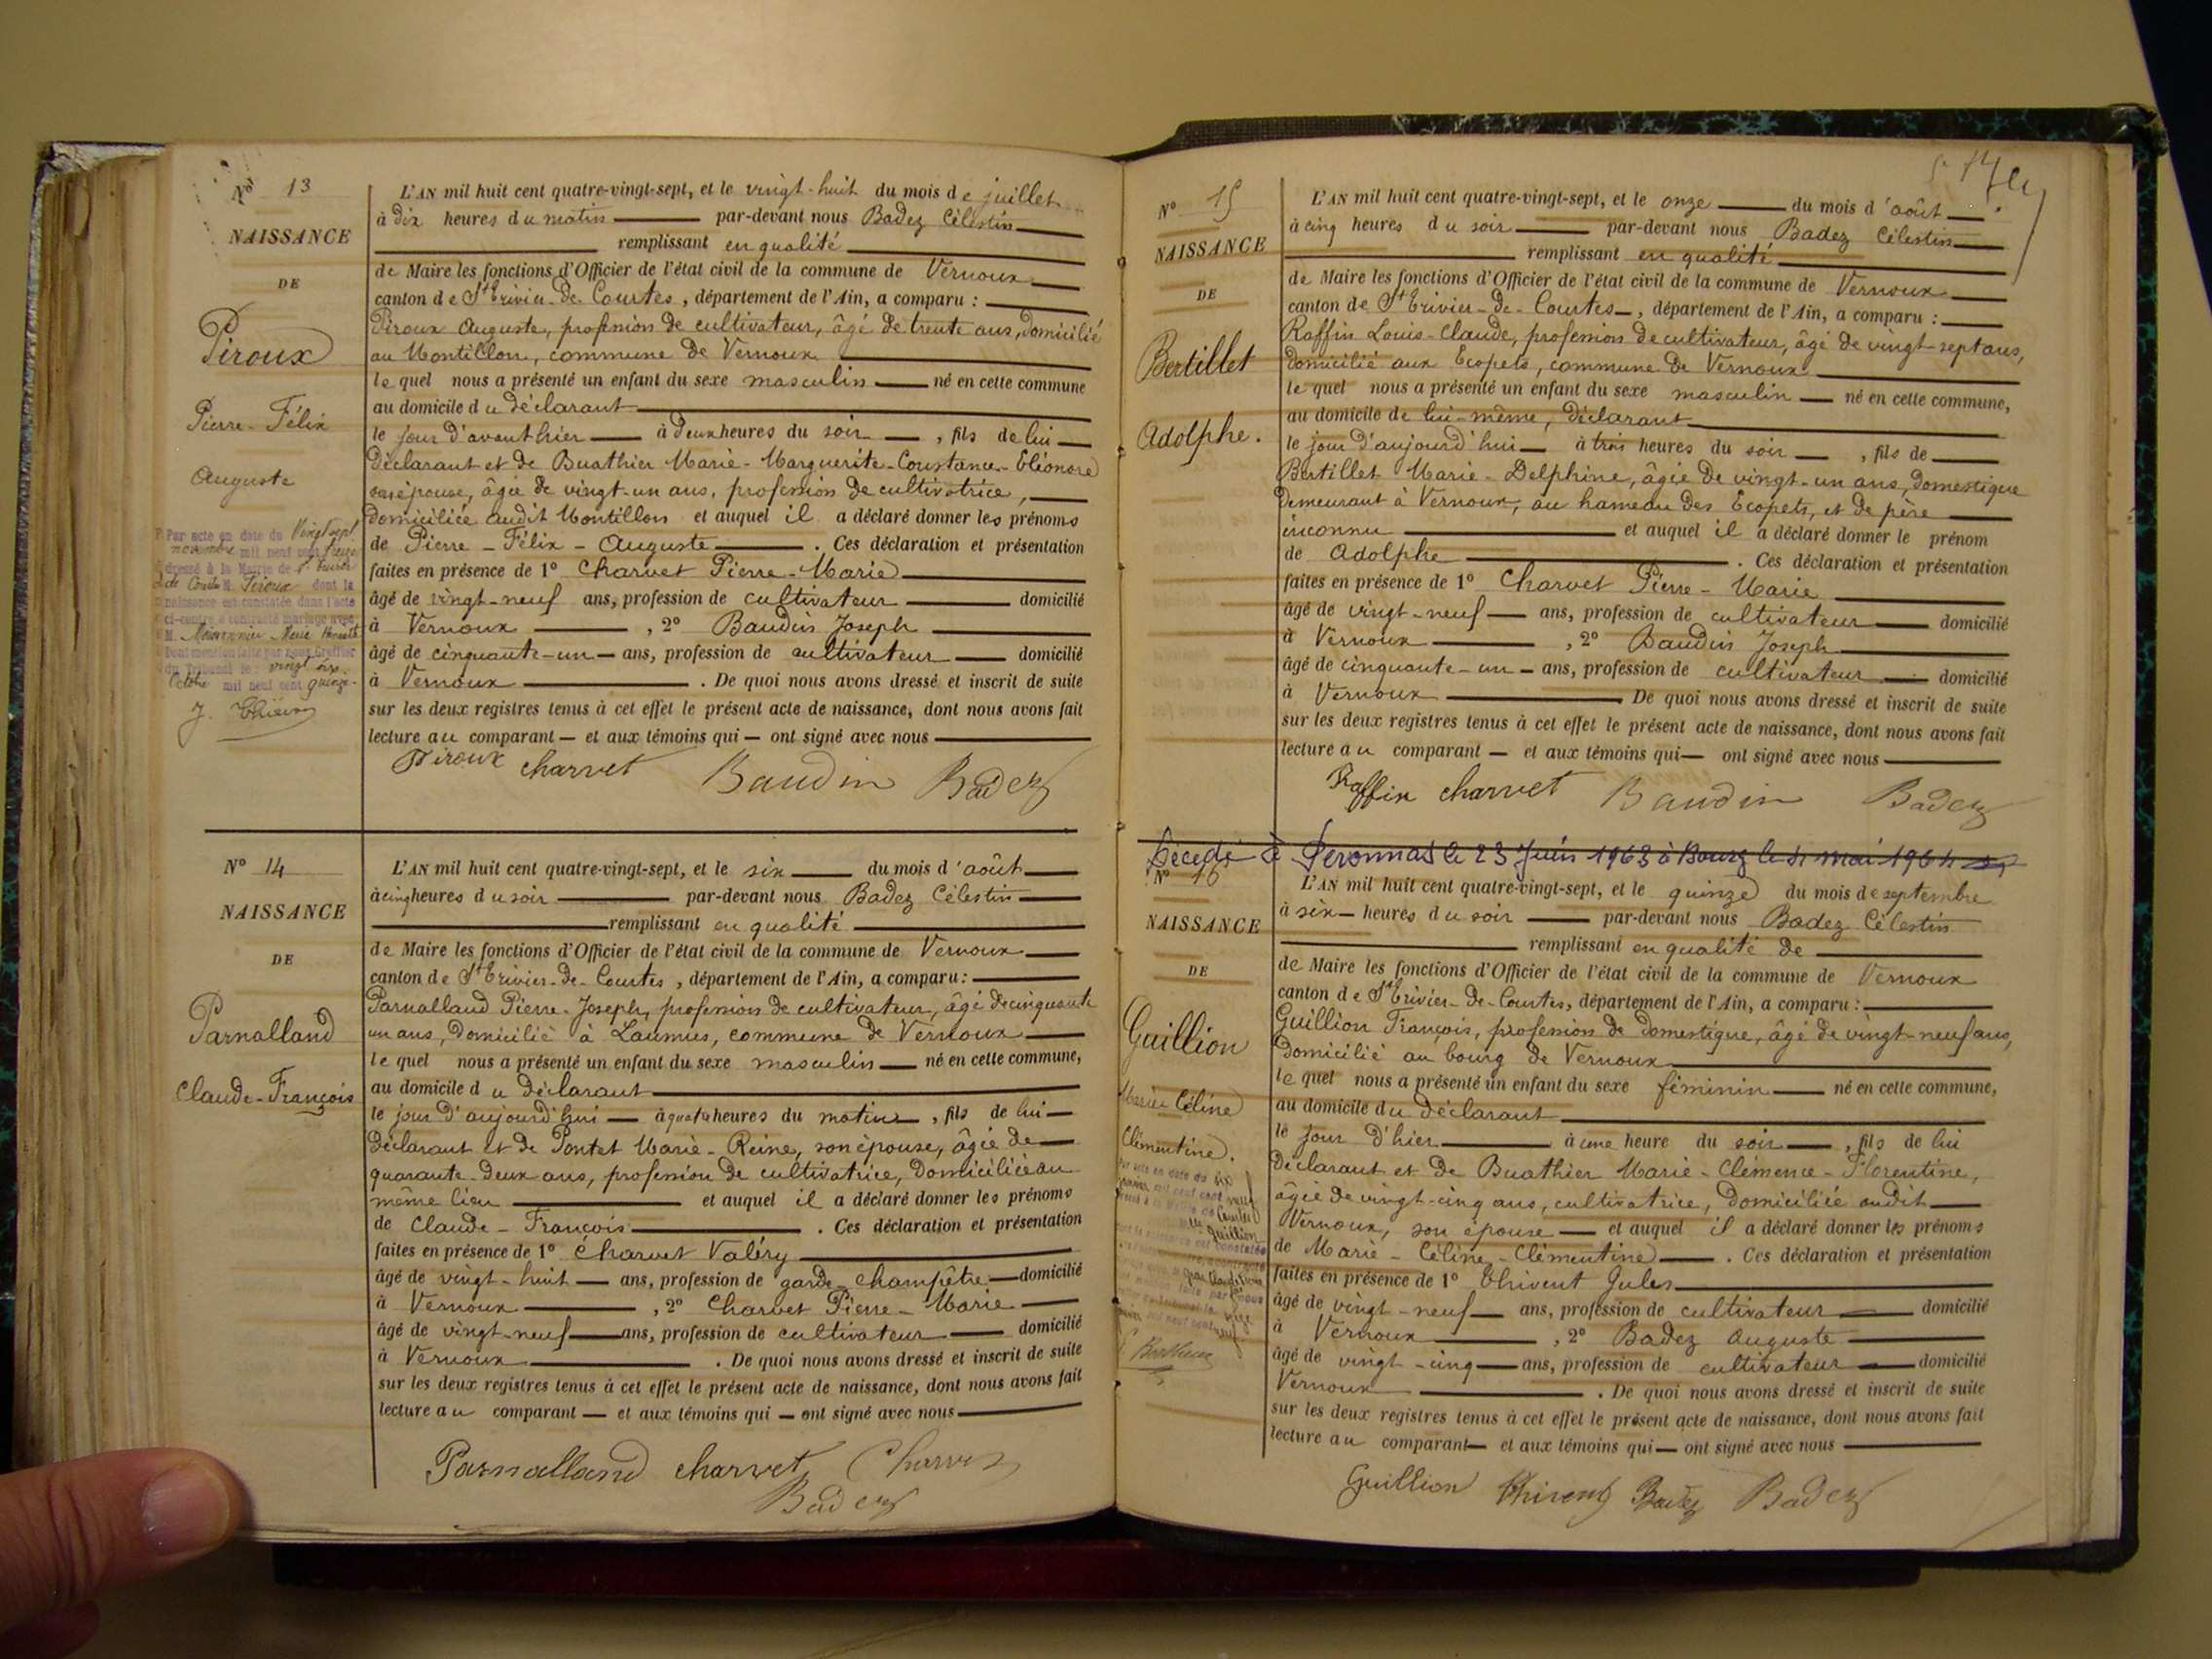 N° 13
NAISSANCE
DE
Piroux
Pierre-Félix
Auguste
Par acte en date du Vingt sept
novembre mil neuf cent treize
dressé à la Mairie de St Trivier
de Courtes M. Piroux dont la
naissance est constatée dans l'acte
ci-contre a contracté mariage avec
M. Moissonnier Marie
Dont mention faite par nous Greffier
du Tribunal le vingt six
Octobre mil neuf cent quinze.
L'AN mil huit cent quatre-vingt-sept, et le vingt-huit du mois de juillet
à dix heures du matin par-devant nous Badez Célestin
remplissant en qualité
de Maire les fonctions d'Officier de l'état civil de la commune de Vernoux
canton de St Trivier-de-Courtes, département de l'Ain, a comparu :
Piroux Auguste, profession de cultivateur, âgé de trente ans, domicilié
au Montillon, commune de Vernoux
lequel nous a présenté un enfant du sexe masculin né en cette commune
au domicile du déclarant
le jour d'avant hier à deux heures du soir, fils de lui
déclarant et de Buathier Marie-Marguerite-Constance-Eléonore
son épouse, âgée de vingt-un ans, profession de cultivatrice,
domiciliée audit Montillon et auquel il a déclaré donner les prénoms
de Pierre-Félix-Auguste. Ces déclaration et présentation
faites en présence de 1° Charvet Pierre-Marie
âgé de vingt-neuf ans, profession de cultivateur domicilié
à Vernoux, 2° Baudin Joseph
âgé de cinquante-un ans, profession de cultivateur domicilié
à Vernoux. De quoi nous avons dressé et inscrit de suite
sur les deux registres tenus à cet effet le présent acte de naissance, dont nous avons fait
lecture au comparant et aux témoins qui ont signé avec nous
Piroux charvet Baudin Badez
N° 14
NAISSANCE
DE
Parnalland
Claude-François
L'AN mil huit cent quatre-vingt-sept, et le six du mois d'août
à cinq heures du soir par-devant nous Badez Célestin
remplissant en qualité
de Maire les fonctions d'Officier de l'état civil de la commune de Vernoux
canton de St Trivier-de-Courtes, département de l'Ain, a comparu :
Parnalland Pierre-Joseph, profession de cultivateur, âgé de cinquante
un ans, domicilié à Laumus, commune de Vernoux
lequel nous a présenté un enfant du sexe masculin né en cette commune,
au domicile du déclarant
le jour d'aujourd'hui à quatre heures du matin, fils de lui
déclarant et de Pontet Marie-Reine, son épouse, âgée de
quarante-deux ans, profession de cultivatrice, domiciliée au
même lieu et auquel il a déclaré donner les prénoms
de Claude-François. Ces déclaration et présentation
faites en présence de 1° Charvet Valéry
âgé de vingt-huit ans, profession de garde-champêtre domicilié
à Vernoux, 2° Charvet Pierre-Marie
âgé de vingt-neuf ans, profession de cultivateur domicilié
à Vernoux. De quoi nous avons dressé et inscrit de suite
sur les deux registres tenus à cet effet le présent acte de naissance, dont nous avons fait
lecture au comparant et aux témoins qui ont signé avec nous
Parnalland charvet Charvet
Badez
N° 15
NAISSANCE
DE
Bertillet
Adolphe.
L'AN mil huit cent quatre-vingt-sept, et le onze du mois d'août
à cinq heures du soir par-devant nous Badez Célestin
remplissant en qualité
de Maire les fonctions d'Officier de l'état civil de la commune de Vernoux
canton de St Trivier-de-Courtes, département de l'Ain, a comparu :
Raffin Louis-Claude, profession de cultivateur, âgé de vingt-sept ans,
domicilié aux Ecopets, commune de Vernoux
lequel nous a présenté un enfant du sexe masculin né en cette commune,
au domicile de lui-même, déclarant
le jour d'aujourd'hui à trois heures du soir, fils de
Bertillet Marie-Delphine, âgée de vingt-un ans, domestique
demeurant à Vernoux, au hameau des Ecopets, et de père
inconnu et auquel il a déclaré donner le prénom
de Adolphe. Ces déclaration et présentation
faites en présence de 1° Charvet Pierre-Marie
âgé de vingt-neuf ans, profession de cultivateur domicilié
à Vernoux, 2° Baudin Joseph
âgé de cinquante-un ans, profession de cultivateur domicilié
à Vernoux De quoi nous avons dressé et inscrit de suite
sur les deux registres tenus à cet effet le présent acte de naissance, dont nous avons fait
lecture au comparant et aux témoins qui ont signé avec nous
Raffin charvet Baudin Badez
Décédé à Peronnas le 23 Juin 1963 à Bourg le 4 mai 1964
N° 16
NAISSANCE
DE
Guillion
Marie Céline
Clémentine.
L'AN mil huit cent quatre-vingt-sept, et le quinze du mois de septembre
à six heures du soir par-devant nous Badez Célestin
remplissant en qualité de
de Maire les fonctions d'Officier de l'état civil de la commune de Vernoux
canton de St Trivier-de-Courtes, département de l'Ain, a comparu :
Guillion François, profession de domestique, âgé de vingt-neuf ans,
domicilié au bourg de Vernoux
lequel nous a présenté un enfant du sexe féminin né en cette commune,
au domicile du déclarant
le jour d'hier à une heure du soir, fils de lui
déclarant et de Buathier Marie-Clémence-Florentine,
âgée de vingt-cinq ans, cultivatrice, domiciliée audit
Vernoux, son épouse et auquel il a déclaré donner les prénoms
de Marie-Céline-Clémentine. Ces déclaration et présentation
faites en présence de 1° Thivent Jules
âgé de vingt-neuf ans, profession de cultivateur domicilié
à Vernoux, 2° Badez Auguste
âgé de vingt-cinq ans, profession de cultivateur domicilié
Vernoux. De quoi nous avons dressé et inscrit de suite
sur les deux registres tenus à cet effet le présent acte de naissance, dont nous avons fait
lecture au comparant et aux témoins qui ont signé avec nous
Guillion Thivent Badez Badez